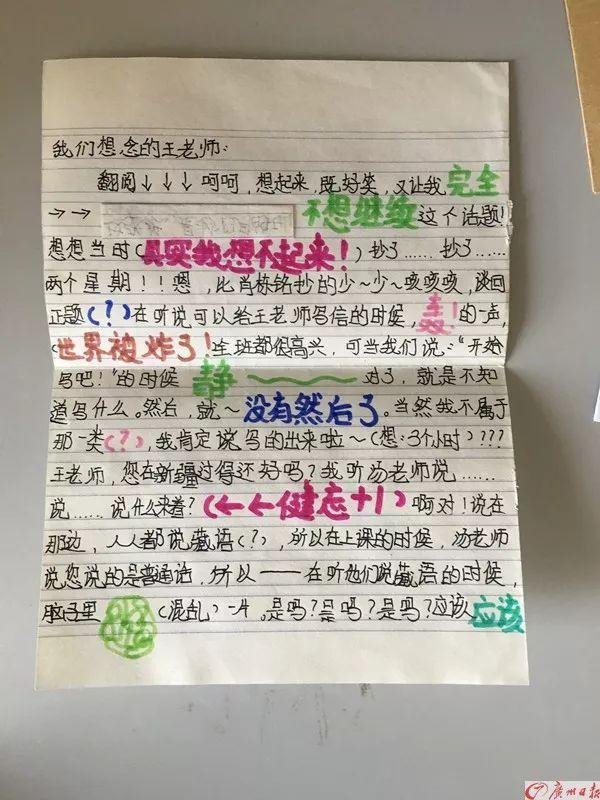 我们想念的王老师:
翻阅↓↓↓呵呵,想起来,既好笑,又让我完全
→→ 不想继续这个话题!
想想当时(其实我想不起来!)抄了……抄了……
两个星期!!嗯,比肖栋铭抄的少~少~咳咳咳,谈回
正题(?)在听说可以给王老师写信的时候,轰!的一声,
(世界被炸了!全班都很高兴,可当我们说:“开始
写吧!”的时候 静~~~ 对了,就是不知
道写什么。然后,就~没有然后了。当然我不属于
那一类(?),我肯定说写的出来啦~(想:3个小时)???
王老师,您在新疆过得还好吗?我听汤老师说……
说……说什么来着?(←←健忘+1)啊对!说在
那边,人人都说藏语(?),所以在上课的时候,汤老师
说您说的是普通话,所以——在听他们说藏语的时候,
脑子里 (混乱)一片。是吗?是吗?是吗?应该应该
广州日报